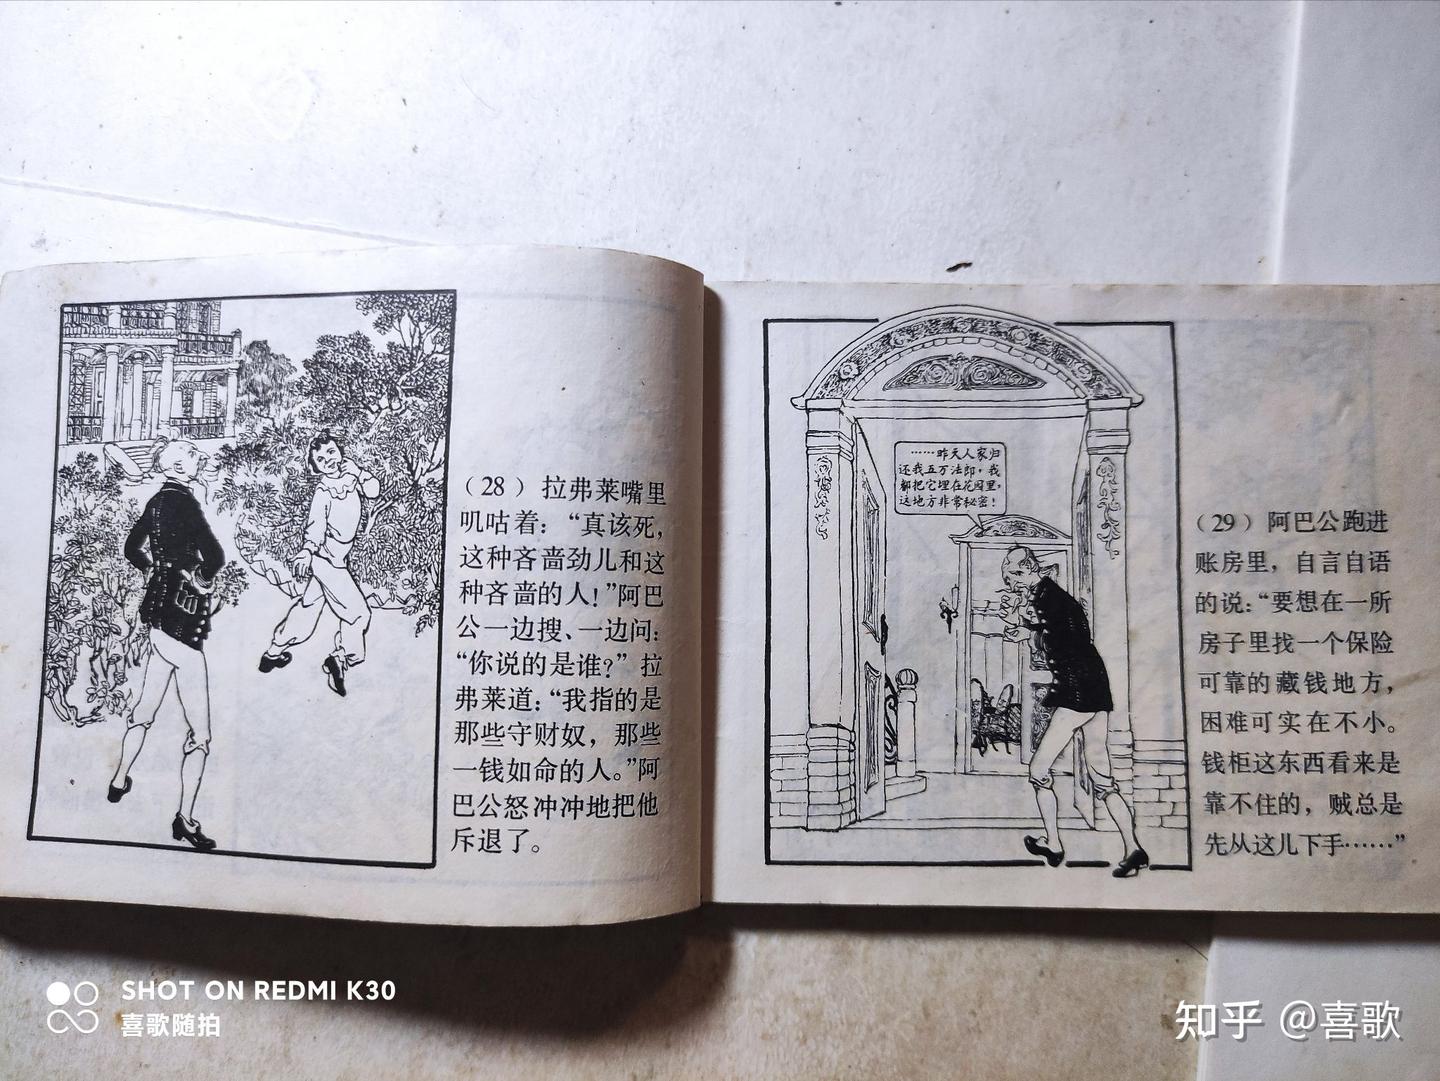 （28）拉弗莱嘴里
叽咕着：“真该死，
这种吝啬劲儿和这
种吝啬的人！”阿巴
公一边搜、一边问：
“你说的是谁？”拉
弗莱道：“我指的是
那些守财奴，那些
一钱如命的人。”阿
巴公怒冲冲地把他
斥退了。
……昨天人家归
还我五万法郎，我
都把它埋在花园里，
这地方非常秘密！
（29）阿巴公跑进
账房里，自言自语
的说：“要想在一所
房子里找一个保险
可靠的藏钱地方，
困难可实在不小。
钱柜这东西看来是
靠不住的，贼总是
先从这儿下手……”
SHOT ON REDMI K30
喜歌随拍
知乎 @喜歌